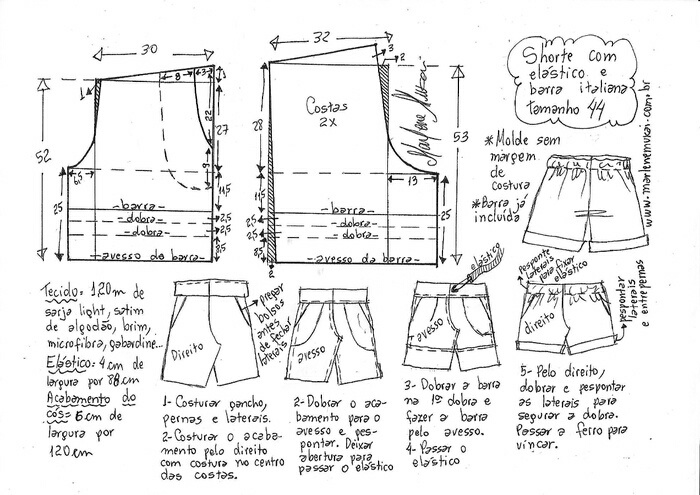 30
32
Shorte com
elástico e
barra italiana
tamanho 44
1
8
3
1
22
27
9
52
6,5
11,5
25
-barra-
-dobra-
-dobra-
avesso da barra-
2,5
2,5
3
2
Costas
2x
Marlene Mukai
28
53
13
11,5
25
25
-barra-
-dobra-
-dobra-
avesso da barra-
2,5
2,5
2
*Molde sem
margem
de
costura
*Barra já
incluída
www.marlenemukai.com.br
Tecido= 1,20m de
sarja light, satim
de algodão, brim,
microfibra, gabardine...
Elástico: 4 cm de
largura por 88 cm
Acabamento do
cós= 6 cm de
largura por
120 cm
Direito
Prepar
bolsos
antes
de fechar
laterais
1- Costurar gancho,
pernas e laterais.
2- Costurar o acaba-
mento pelo direito
com costura no centro
das costas.
avesso
2- Dobrar o aca-
bamento para o
avesso e pes-
pontar. Deixar
abertura para
passar o elástico
elástico
avesso
3- Dobrar a barra
na 1º dobra e
fazer a barra
pelo avesso.
4- Passar o
elástico
pesponte
laterais
para fixar
elástico
direito
pespontar
laterais
e entrepernas
5- Pelo direito,
dobrar e pespontar
as laterais para
segurar a dobra.
Passar a ferro para
vincar.